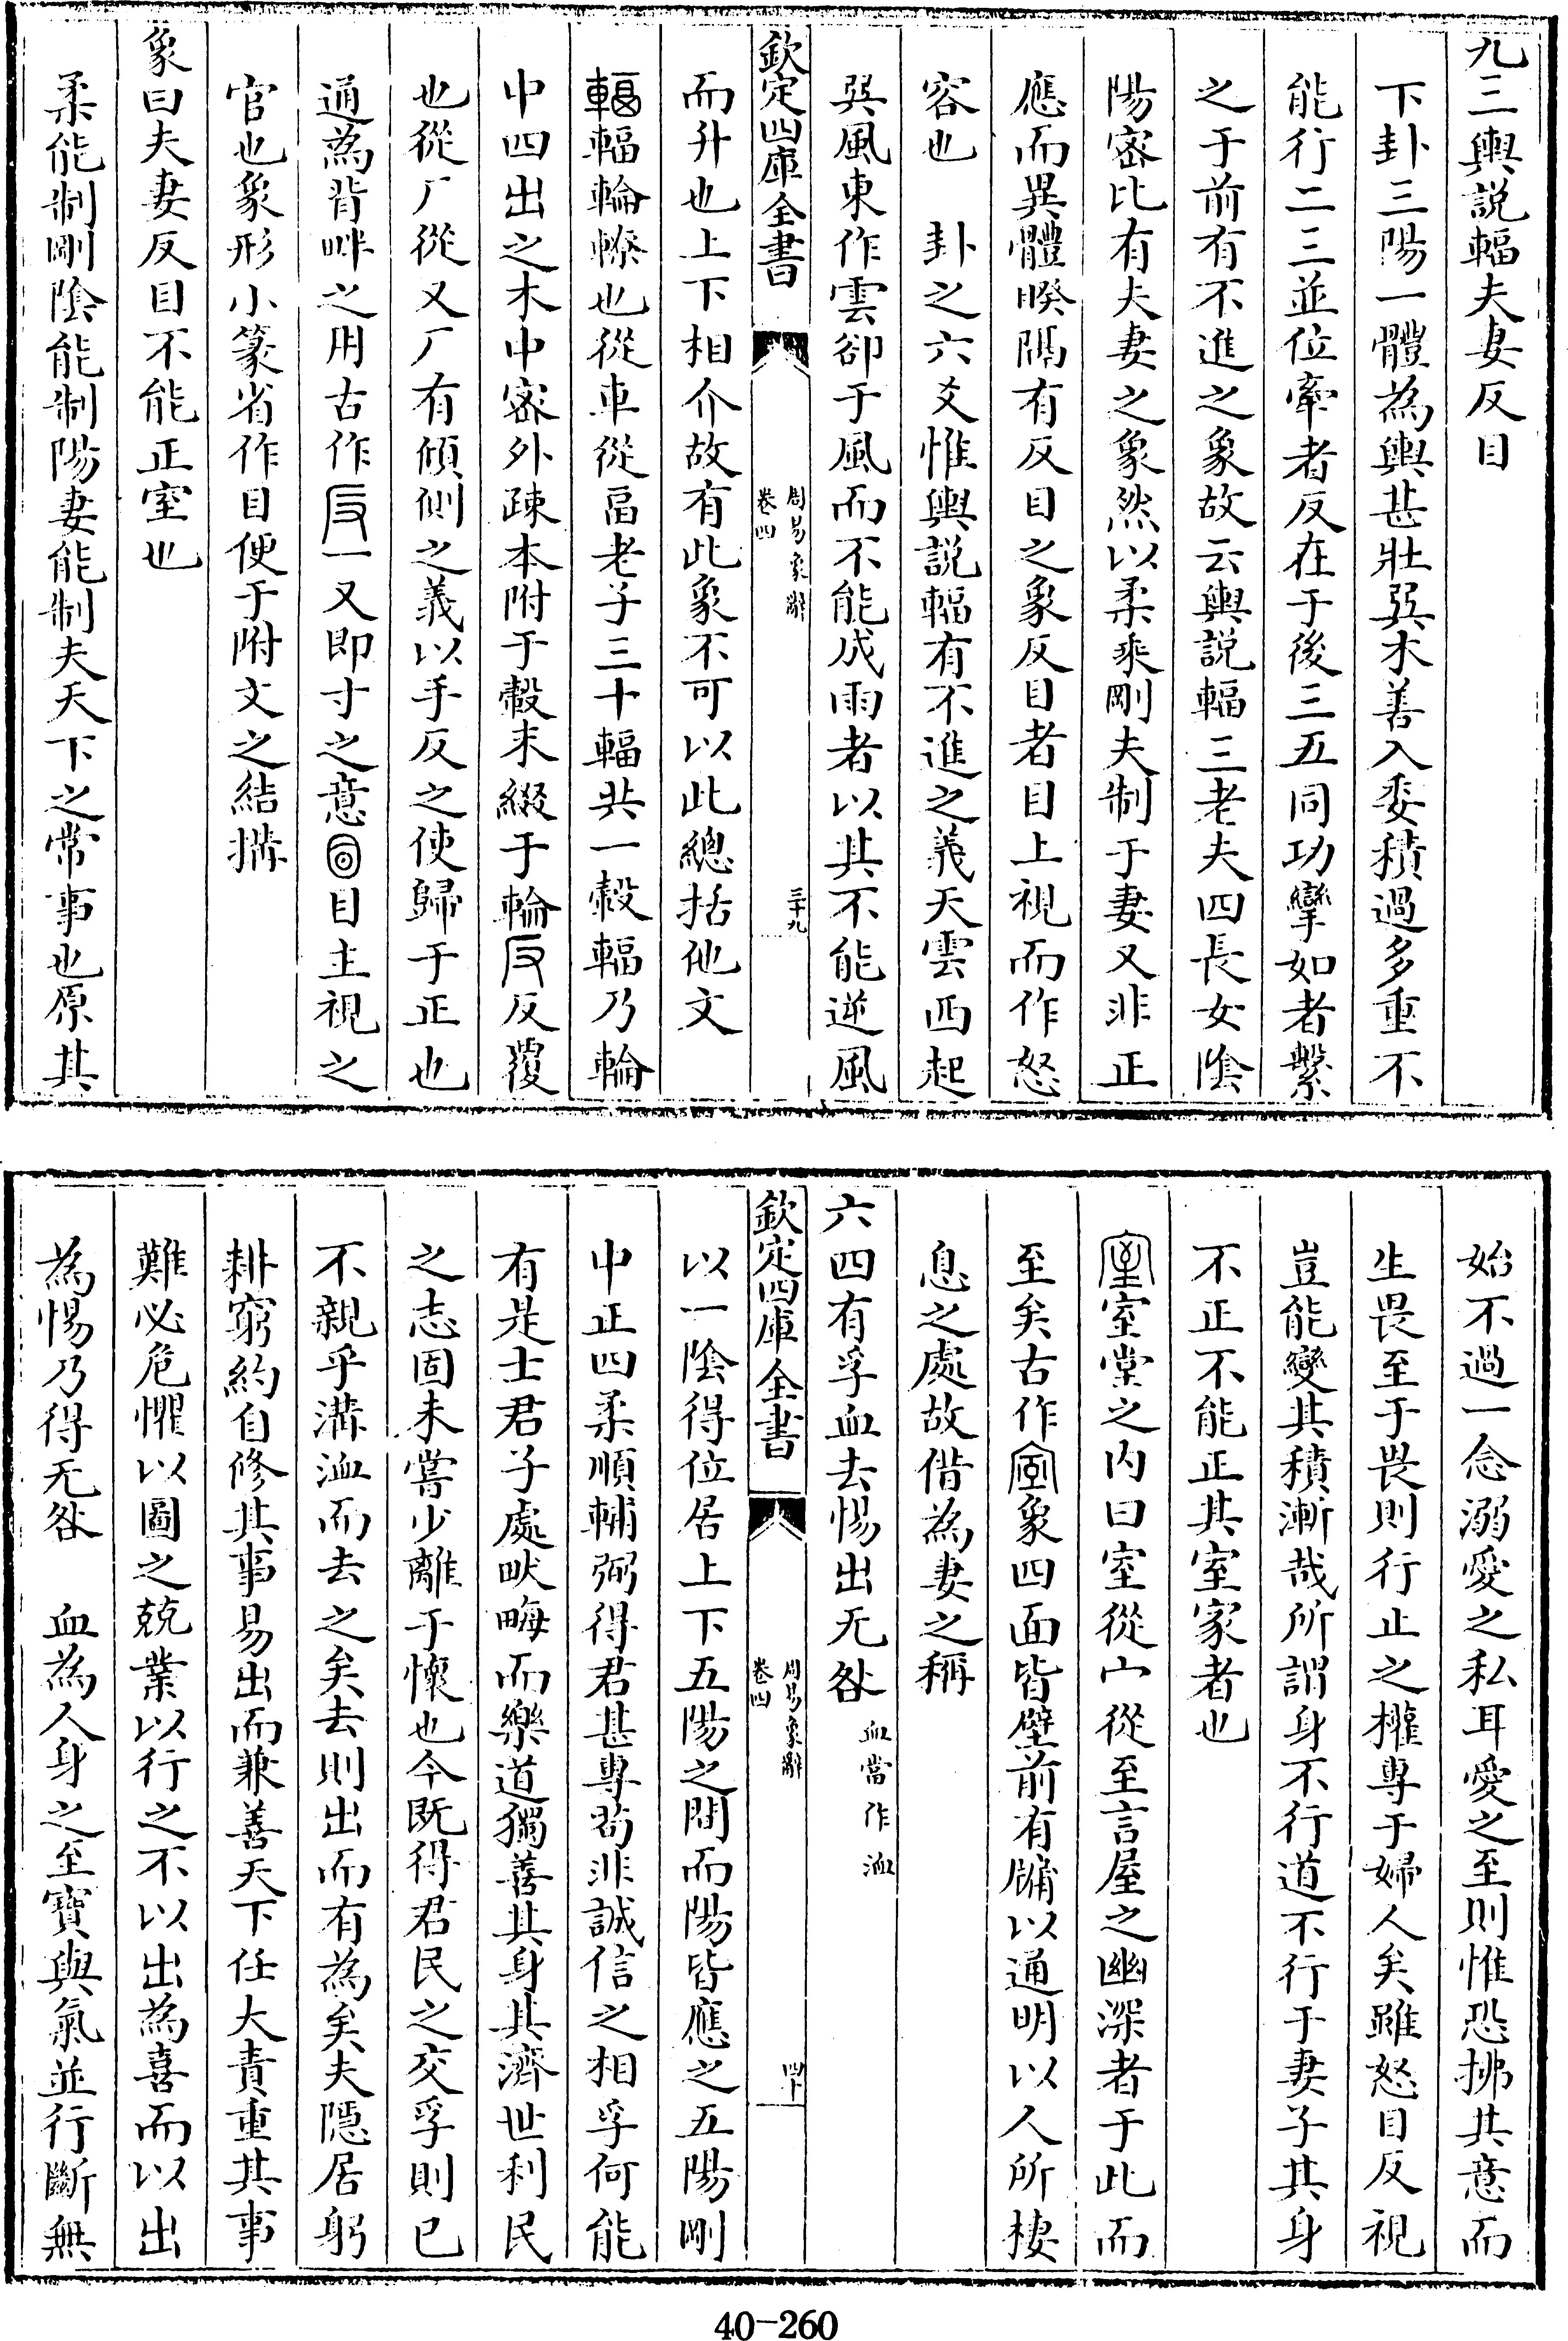 九三輿説輻夫妻反目
下卦三陽一體為輿甚壯巽木善入委積過多重不
能行二三並位牽者反在于後三五同功攣如者繫
之于前有不進之象故云輿説輻三老夫四長女陰
陽密比有夫妻之象然以柔乘剛夫制于妻又非正
應而異體暌隔有反目之象反目者目上視而作怒
容也　卦之六爻惟輿説輻有不進之義天雲西起
巽風東作雲卻于風而不能成雨者以其不能逆風
欽定四庫全書
周易象辭
卷四
三十九
而升也上下相介故有此象不可以此總括他文
輻輪轑也從車從畐老子三十輻共一轂輻乃輪
中四出之木中密外疎本附于轂末綴于輪反覆
也從厂從又厂有傾側之義以手反之使歸于正也
通為背畔之用古作一又即寸之意目主視之
官也象形小篆省作目便于附文之結搆
象曰夫妻反目不能正室也
柔能制剛陰能制陽妻能制夫天下之常事也原其
始不過一念溺愛之私耳愛之至則惟恐拂其意而
生畏至于畏則行止之權專于婦人矣雖怒目反視
豈能變其積漸哉所謂身不行道不行于妻子其身
不正不能正其室家者也
室堂之内曰室從宀從至言屋之幽深者于此而
至矣古作象四面皆壁前有牖以通明以人所棲
息之處故借為妻之稱
六四有孚血去惕出无咎血當作洫
欽定四庫全書
周易象辭
卷四
四十
以一陰得位居上下五陽之間而陽皆應之五陽剛
中正四柔順輔弼得君甚專苟非誠信之相孚何能
有是士君子處畎畮而樂道獨善其身其濟世利民
之志固未嘗少離于懷也今既得君民之交孚則已
不親乎溝洫而去之矣去則出而有為矣夫隱居躬
耕窮約自修其事易出而兼善天下任大責重其事
難必危懼以圖之兢業以行之不以出為喜而以出
為惕乃得无咎　血為人身之至寶與氣並行斷無
40-260